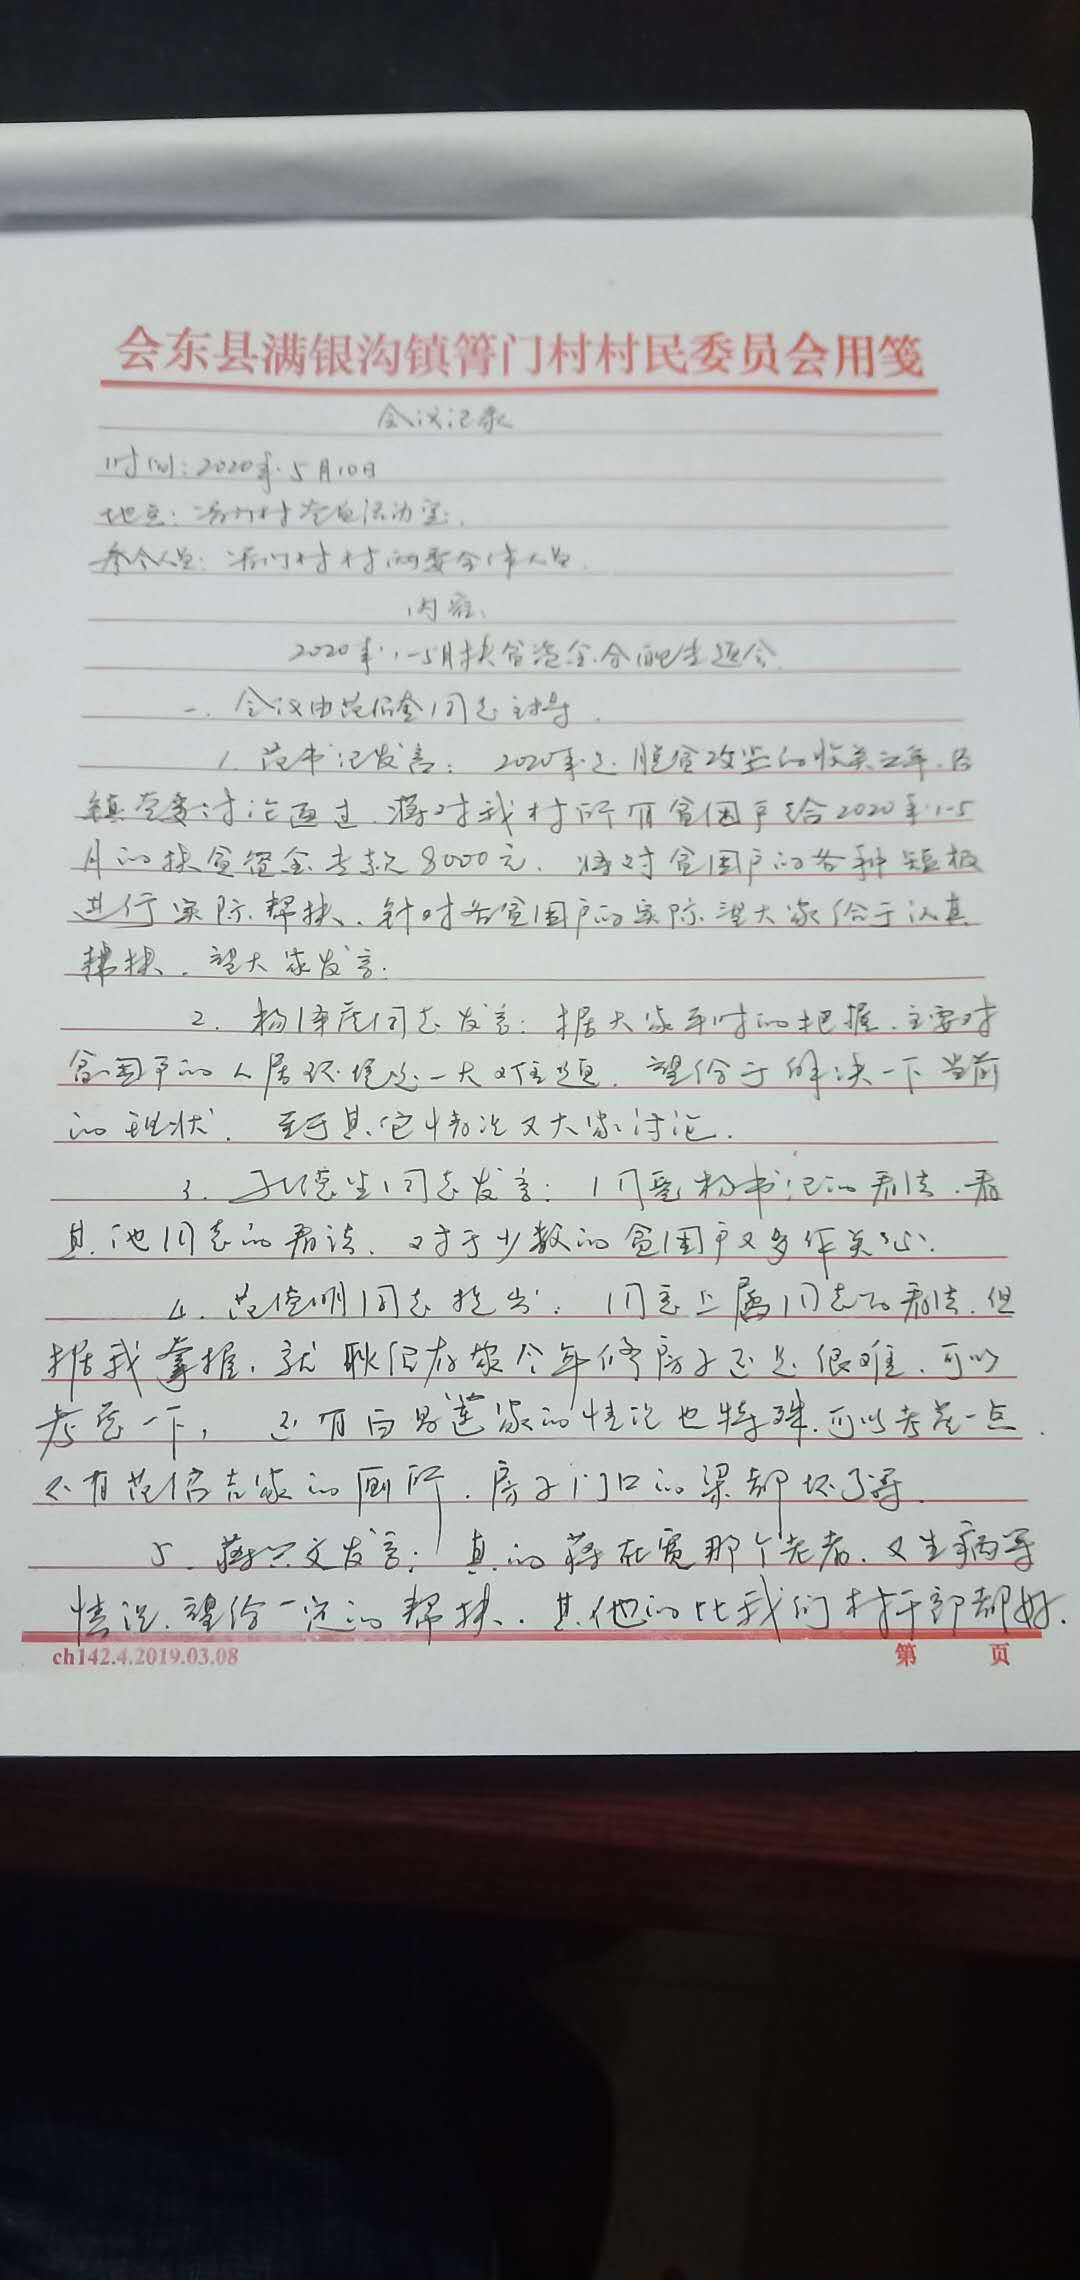 会东县满银沟镇箐门村村民委员会用笺
会议记录
时间:2020年5月10日
地点:箐门村党员活动室.
参会人员:箐门村村两委全体人员.
内容:
2020年1-5月扶贫资金分配专题会.
一、会议由范信同志主持.
1.范书记发言:2020年是脱贫攻坚的收关之年.经
镇党委讨论通过.将对我村所有贫困户给2020年1-5
月的扶贫资金专款8000元.将对贫困户的各种短板
进行实际帮扶、针对各贫困户的实际望大家给于认真
帮扶.望大家发言.
2.杨泽同志发言:据大家平时的把握.主要对
贫困户的人居环境是一大难题.望给于解决一下当前
的现状.至于其它情况又大家讨论.
3.同志发言:同意杨书记的看法.看
其他同志的看法、对于少数的贫困户又多作关心.
4.范明同志提出:同意上属同志的看法.但
据我掌握、就耿家今年修房子还是很难、可以
考虑一下,还有白家的情况也特殊.可以考虑一点.
还有范信吉家的厕所、房子门口的梁都坏了等.
5.蒋兴文发言:真的蒋在宽那个老者、又生病等
情况、望给一定的帮扶、其他的比我们村干部都好.
ch142.4.2019.03.08
第 页